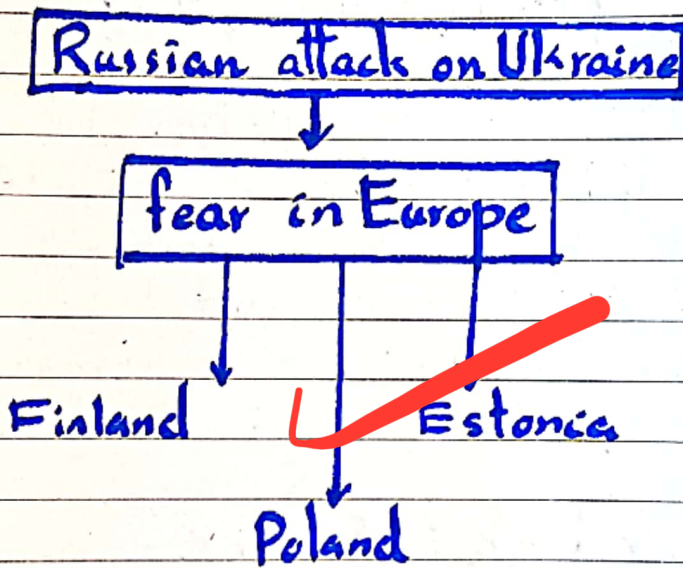 Russian attack on Ukraine
fear in Europe
Finland
Estonia
Poland